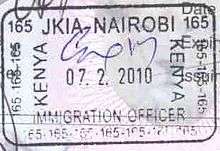 Date
165 JKIA-NAIROBI 165
KENYA 07. 2. 2010 KENYA
IMMIGRATION OFFICER
165-165-165-165-165-165-165